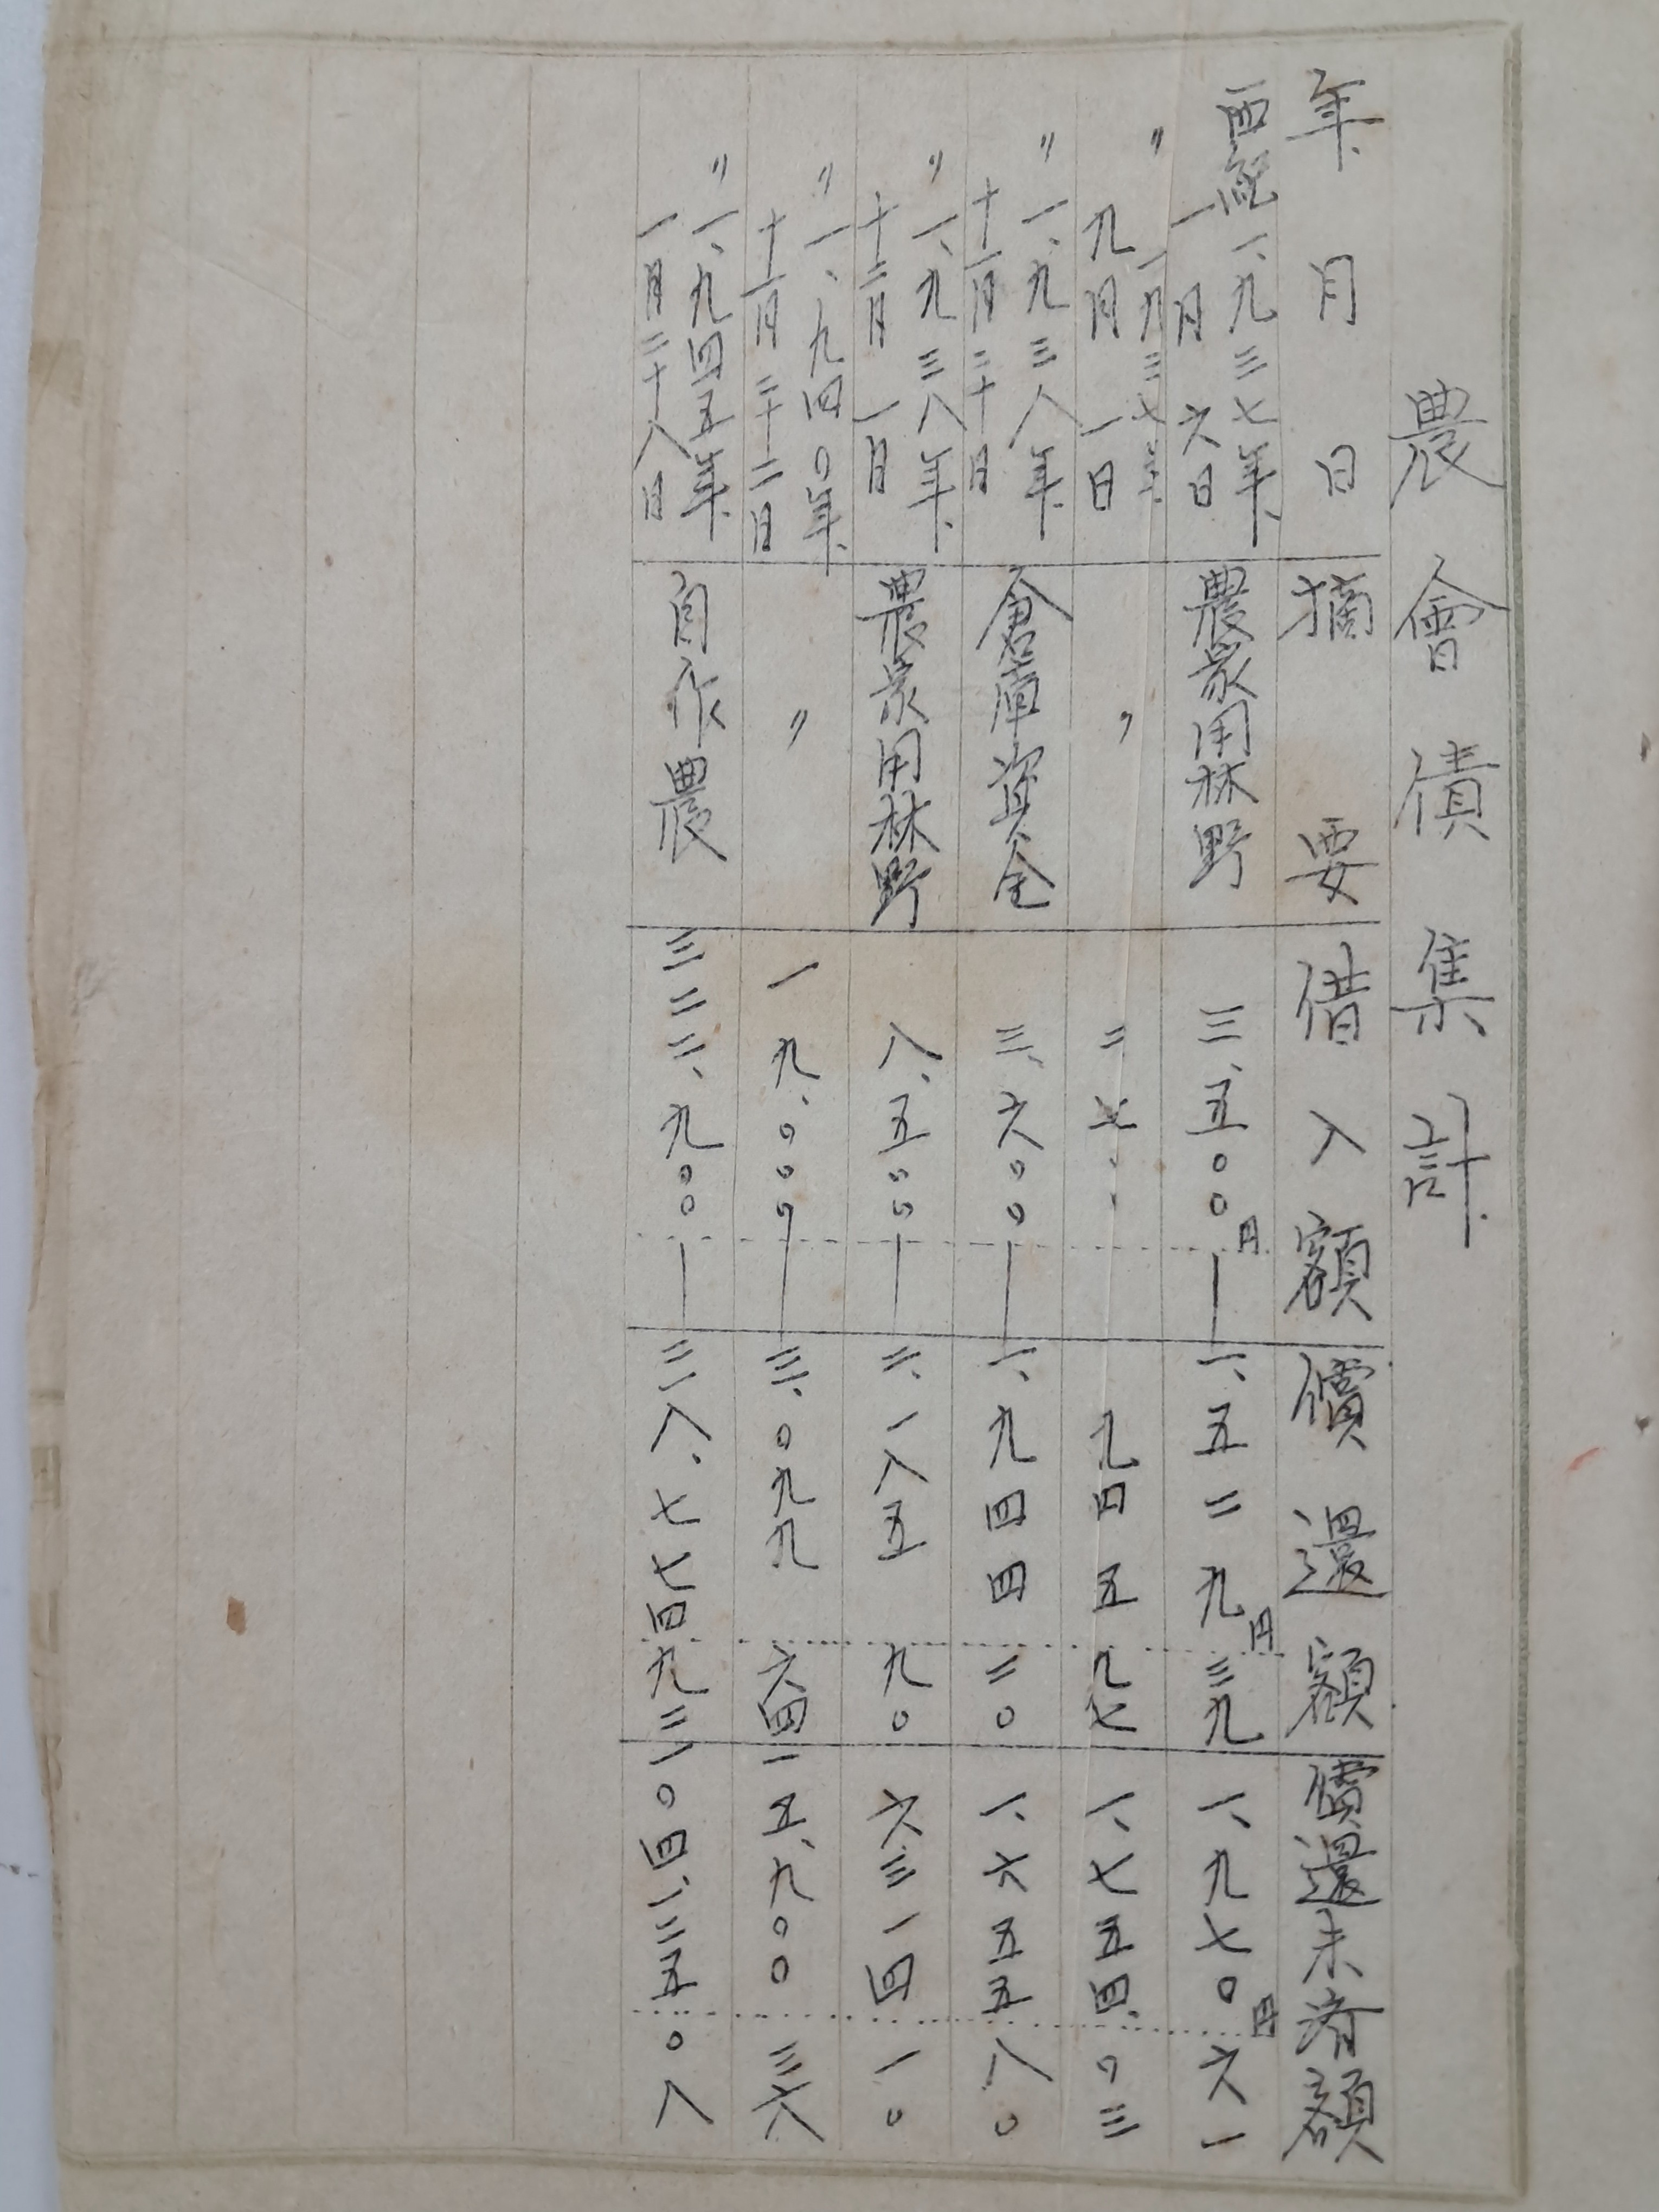 農會債集計
年月日 摘要 借入額 償還額 償還未済額
西紀一、九三七年
一月六日 農家用林野 三、五〇〇円— 一、五二九円三九 一、九七〇円六一
〃一、九三七年
九月一日 〃 二七〇〇 九四五九七 一、七五四、〇三
〃一、九三八年
十一月二十日 倉庫資金 三、六〇〇— 一、九四四二〇 一、六五五八〇
〃一、九三八年
十二月一日 農家用林野 八、五〇〇— 二、一八五九〇 六、三一四一〇
〃一、九四〇年
十一月二十二日 〃 一九、〇〇〇— 三、〇九九六四 一五、九〇〇三六
〃一、九四五年
一月二十八日 自作農 三二二、九〇〇— 二一八、七七四九二 一〇四、一二五〇八